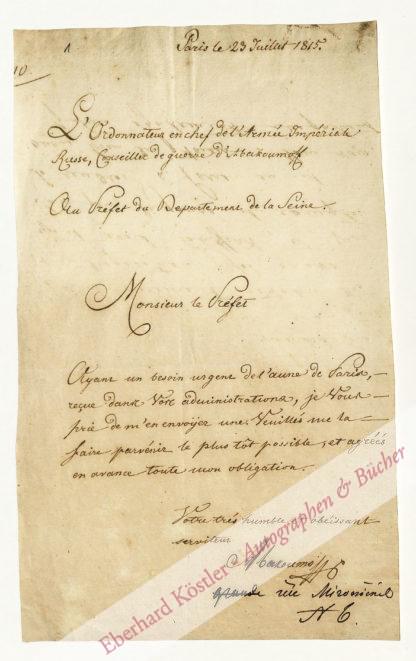 1
Paris le 23 Juillet 1815.
10.
L'Ordonnateur en chef de l'Armée Impériale
Russe, Conseiller de guerre d'Abakoumoff
Au Préfet du Departement de la Seine.
Monsieur le Préfet
Ayant un besoin urgent de l'aune de Paris,
reçue dans Vos administrations, je Vous
prie de m'en envoyer une. Veuillés me la
faire parvenir le plus tôt possible, et agréés
en avance toute mon obligation.
Votre très humble et obéissant
serviteur
Abakoumoff
rue Miromenil
Eberhard Köstler - Autographen & Bücher